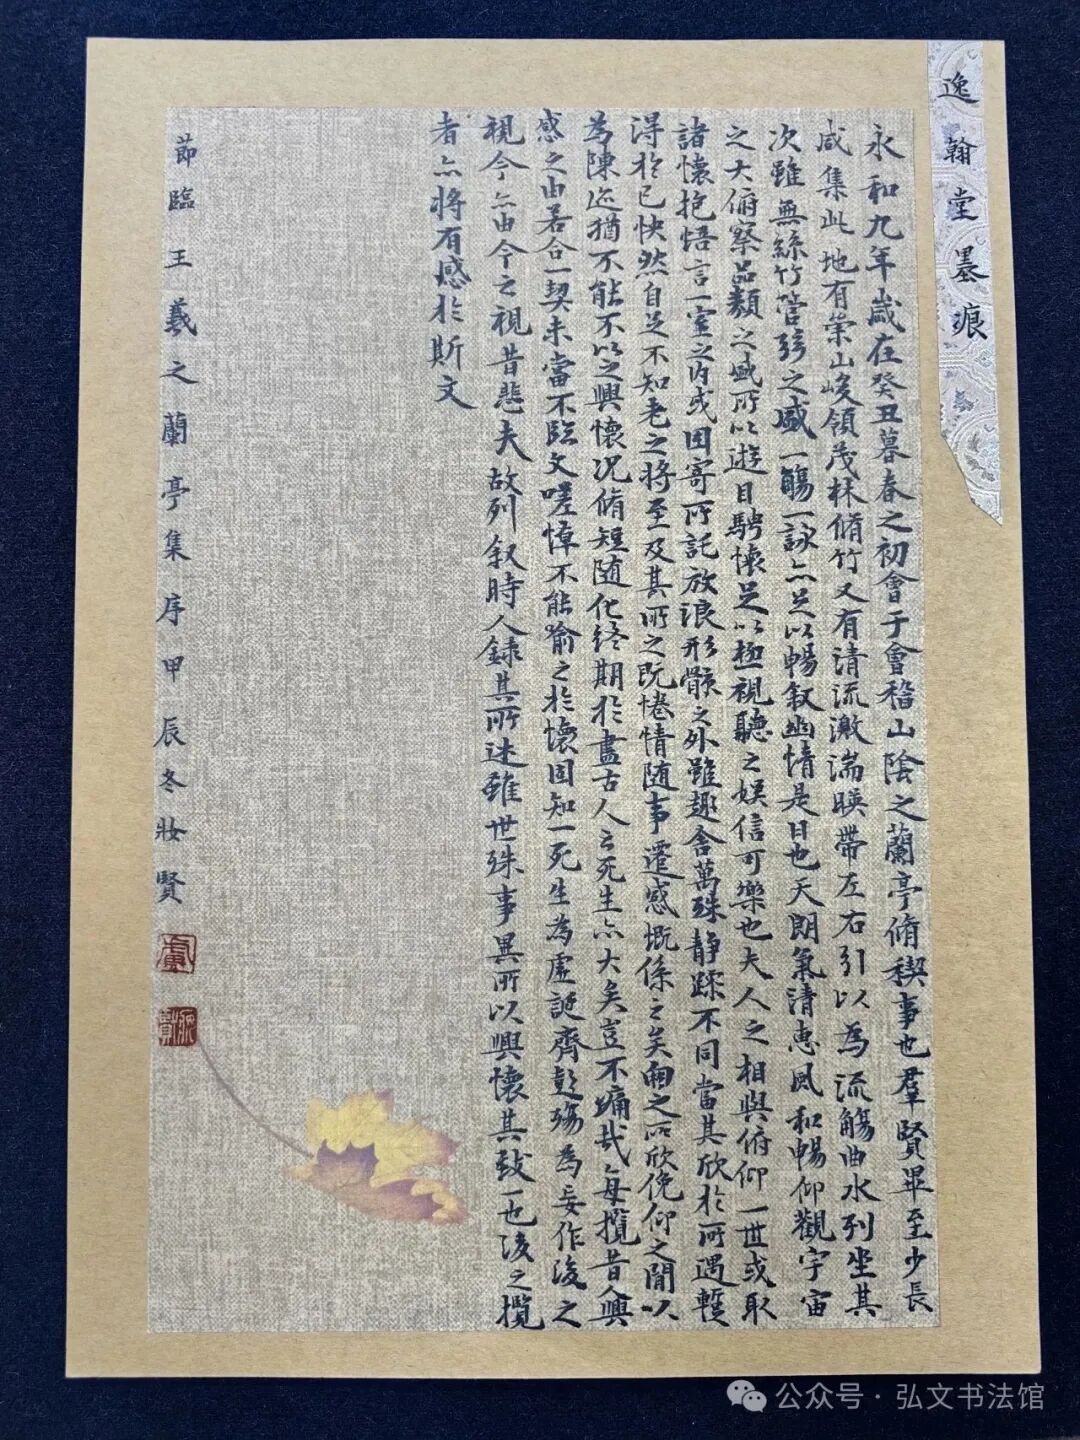 逸翰堂墨痕
永和九年歲在癸丑暮春之初會于會稽山陰之蘭亭脩稧事也羣賢畢至少長
咸集此地有崇山峻領茂林脩竹又有清流激湍暎帶左右引以為流觴曲水列坐其
次雖無絲竹管弦之盛一觴一詠亦足以暢叙幽情是日也天朗氣清惠風和暢仰觀宇宙
之大俯察品類之盛所以遊目騁懷足以極視聽之娛信可樂也夫人之相與俯仰一世或取
諸懷抱悟言一室之內或因寄所託放浪形骸之外雖趣舍萬殊靜躁不同當其欣於所遇蹔
得於己快然自足不知老之將至及其所之既惓情随事遷感慨係之矣向之所欣俛仰之閒以
為陳迹猶不能不以之興懷況脩短随化終期於盡古人云死生亦大矣豈不痛哉每攬昔人興
感之由若合一契未嘗不臨文嗟悼不能喻之於懷固知一死生為虛誕齊彭殤為妄作後之
視今亦由今之視昔悲夫故列叙時人錄其所述雖世殊事異所以興懷其致一也後之攬
者亦將有感於斯文
節臨王羲之蘭亭集序甲辰冬妝賢
公众号·弘文书法馆